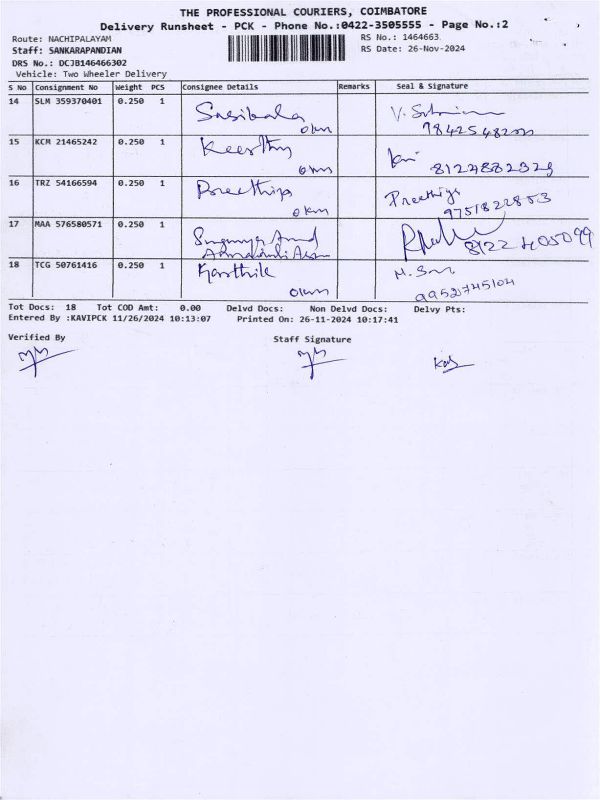 THE PROFESSIONAL COURIERS, COIMBATORE
Delivery Runsheet - PCK - Phone No.:0422-3505555 - Page No.:2
Route: NACHIPALAYAM
RS No.: 1464663
Staff: SANKARAPANDIAN
RS Date: 26-Nov-2024
DRS No.: DCJB146466302
Vehicle: Two Wheeler Delivery
S No Consignment No Weight PCS Consignee Details Remarks Seal & Signature
14 SLM 359370401 0.250 1 Sasikala
0km
15 KCM 21465242 0.250 1 Keerthy
0km 8124882329
16 TRZ 54166594 0.250 1 Preethiya Preethiya
0km 9751822853
17 MAA 576580571 0.250 1
8122405099
18 TCG 50761416 0.250 1 Karthik
0km 9952745104
Tot Docs: 18 Tot COD Amt: 0.00 Delvd Docs: Non Delvd Docs: Delvy Pts:
Entered By :KAVIPCK 11/26/2024 10:13:07 Printed On: 26-11-2024 10:17:41
Verified By Staff Signature